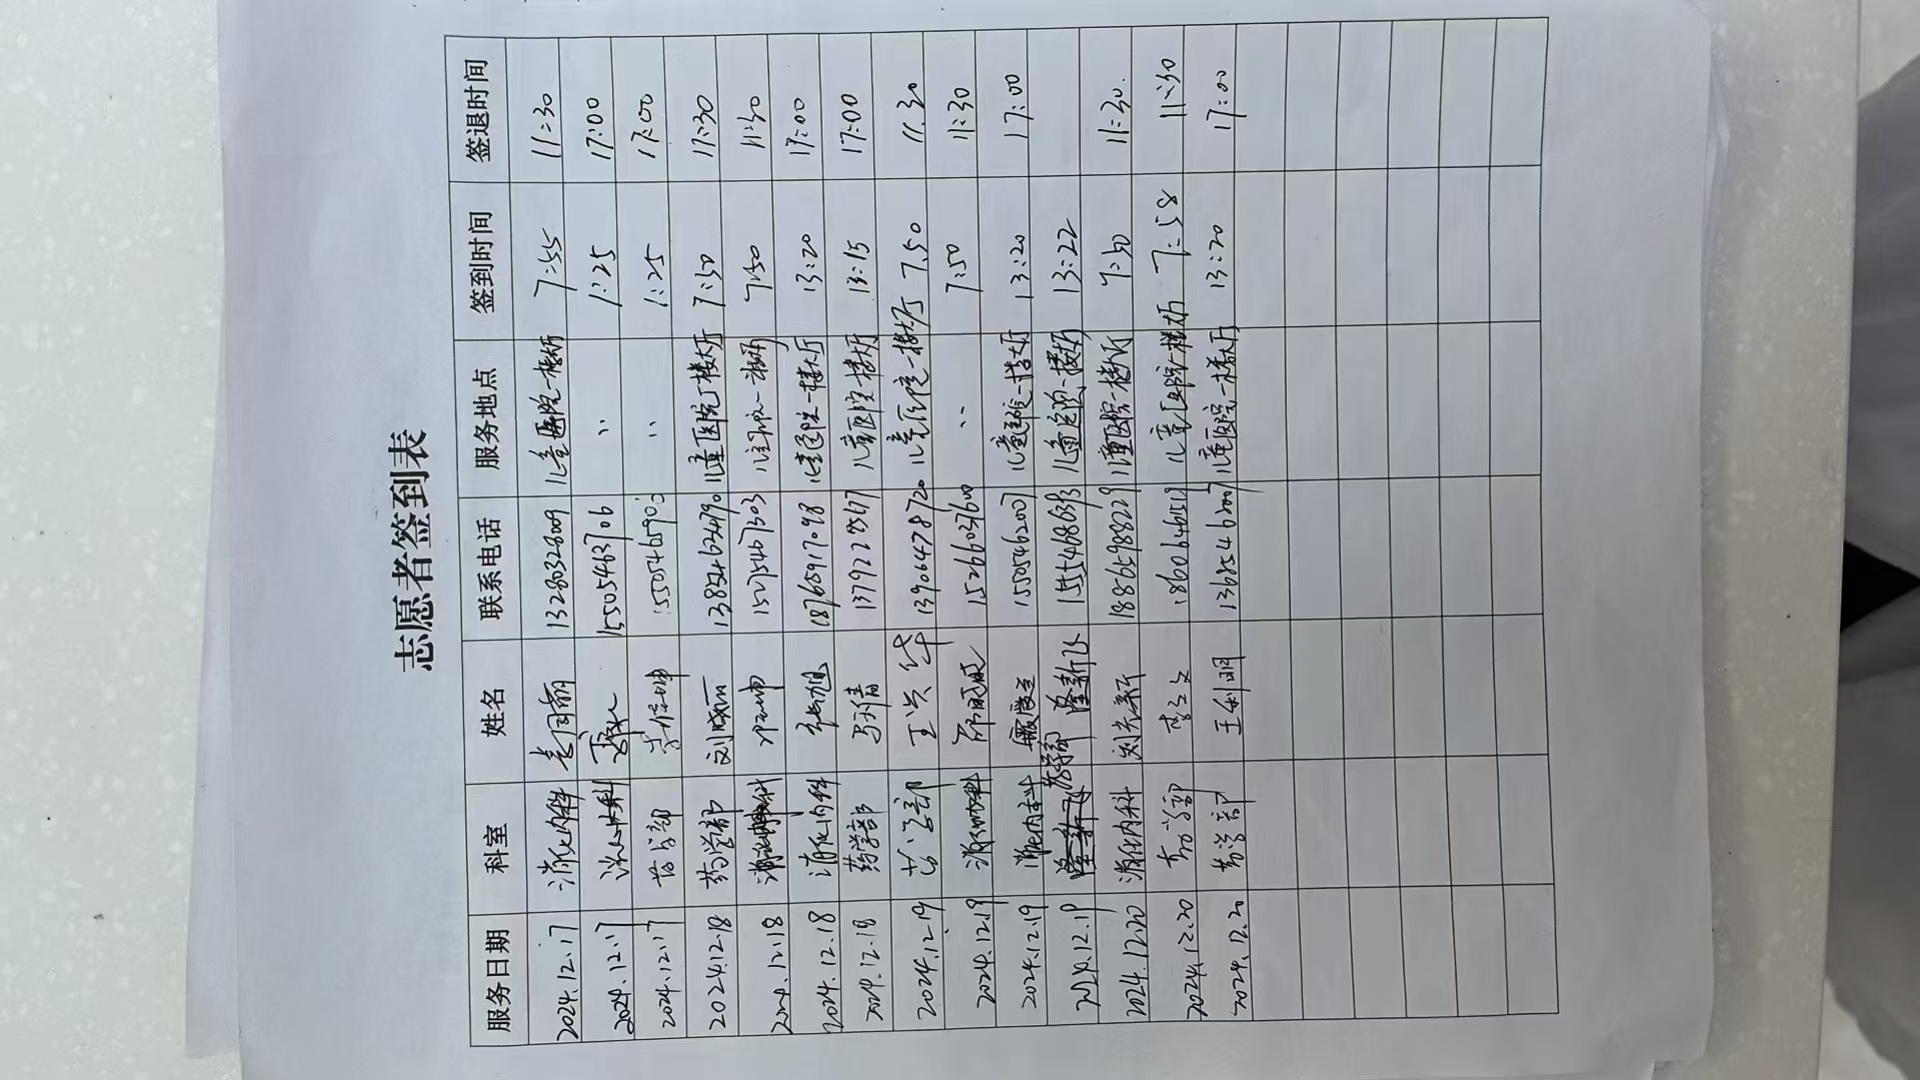 志愿者签到表
服务日期 科室 姓名 联系电话 服务地点 签到时间 签退时间
2024.12.17 消化内科 13280328009 儿童医院一楼大厅 7:55 11:30
2024.12.17 15505463706 〃 1:25 17:00
2024.12.17 药学部 〃 1:25 17:00
2024.12.18 药学部 刘成 儿童医院一楼大厅 7:30 17:30
2024.12.18 消化内科 7:50 11:30
2024.12.18 消化内科 18765917098 儿童医院一楼大厅 13:20 17:00
2024.12.18 药学部 马倩 儿童医院一楼大厅 13:15 17:00
2024.12.19 药学部 王兴华 13906478720 儿童医院一楼大厅 7.50 11.30
2024.12.19 消化内科 15266037600 〃 7:50 11:30
2024.12.19 消化内科 15505462007 儿童医院一楼大厅 13:20 17:00
2024.12.19 药学部 隆新 儿童医院一楼大厅 13:22
2024.12.20 消化内科 刘光新 18865988229 儿童医院一楼大厅 7:50 11:30.
2024.12.20 药学部 儿童医院一楼大厅 7:58 11:30
2024.12.20 药学部 王利明 13685462007 儿童医院一楼大厅 13:20 17:00